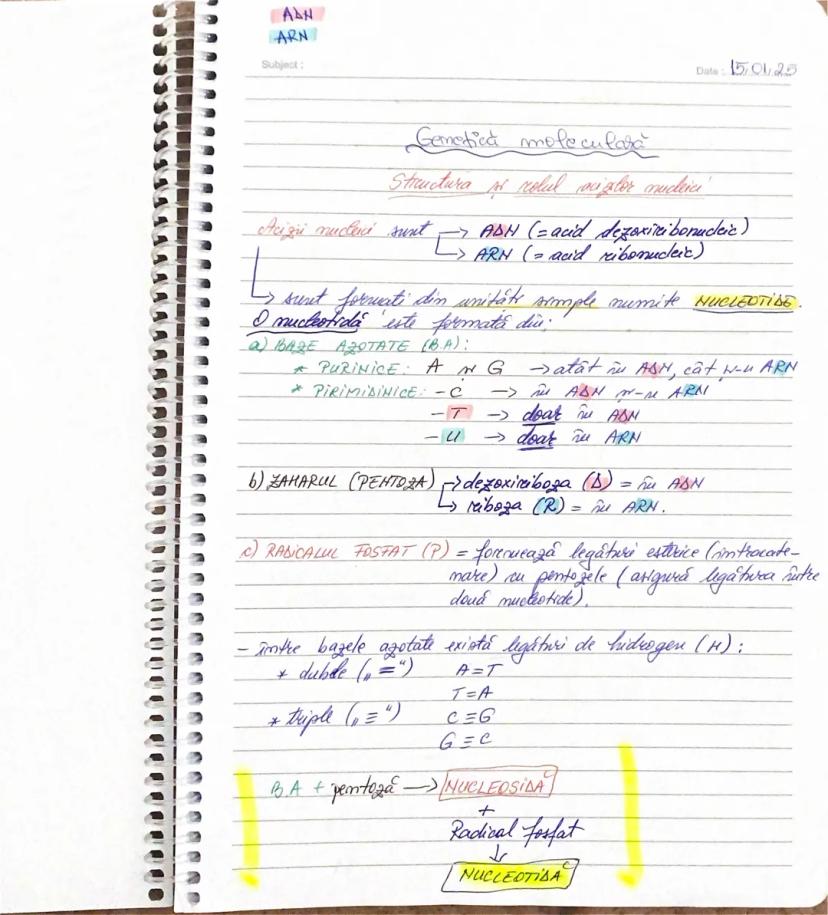 ADN
ARN
Subject :
Date : 15.01.25
Genetică moleculară
Structura și rolul acizilor nucleici
Acizii nucleici sunt → ADN (= acid dezoxiribonucleic)
→ ARN (= acid ribonucleic)
→ sunt formați din unități simple numite NUCLEOTIDE.
O nucleotidă este formată din:
a) BAZE AZOTATE (B.A):
* PURINICE: A și G → atât în ADN, cât și-n ARN
* PIRIMIDINICE: - C → în ADN și-n ARN
- T → doar în ADN
- U → doar în ARN
b) ZAHARUL (PENTOZA) → dezoxiriboza (D) = în ADN
→ riboza (R) = în ARN.
c) RADICALUL FOSFAT (P) = formează legături esterice (intracate-
nare) cu pentozele (asigură legătura între
două nucleotide).
- între bazele azotate există legături de hidrogen (H):
* duble („=") A=T
T=A
* triple („≡") C≡G
G≡C
B.A + pentoză → NUCLEOSIDĂ
+
Radical fosfat
↓
NUCLEOTIDĂ